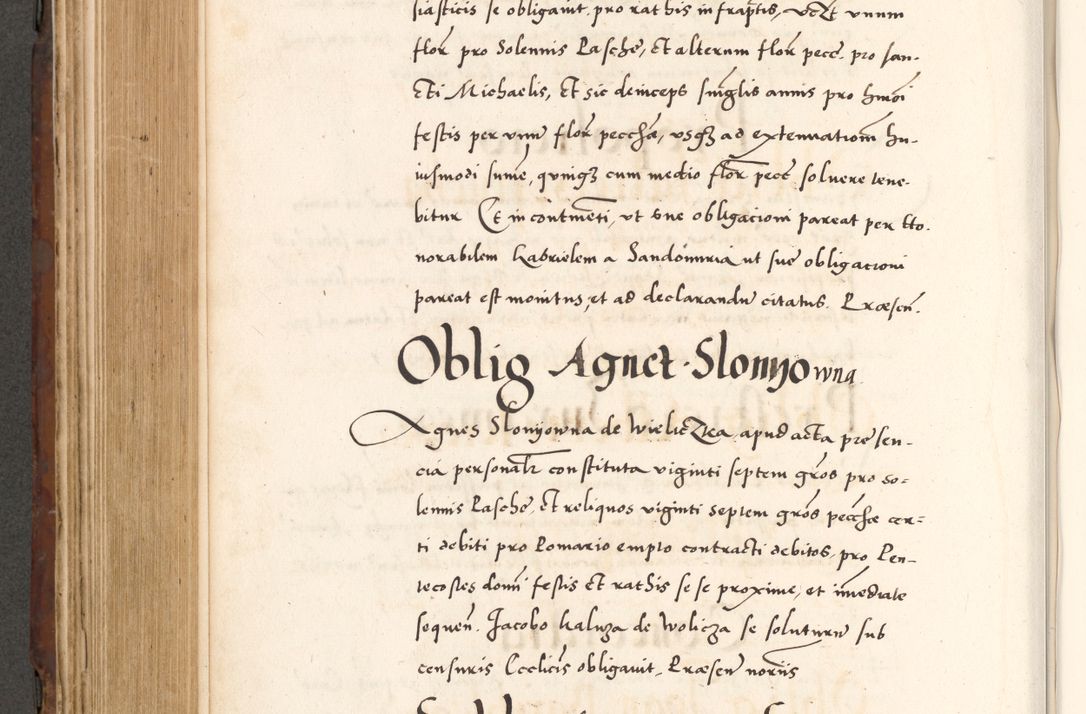 siasticis se obligavit, pro ratis infraptis, vczt unum
flor pro Solennis Pasche, et alterum flor pecc. pro san-
cti Michaelis, Et sic deinceps singlis annis pro hmoi
festis per unu flor pecche, usqz ad extenuationem hu-
iusmodi sume, quinqz cum medio flor pecc solvere tene-
bitur Et in continenti, ut sue obligacioni pareat per Ho-
norabilem Gabrielem a Sandomiria ut sue obligacioni
pareat est monitus, et ad declarandu citatus. Præsen.
Oblig Agnet. Slonyowna
Agnes Slonyowna de Wieliczka apud acta presen-
cia personalr constituta viginti septem gros pro so-
lennis Pasche, et reliquos viginti septem gros pecche cer-
ti debiti pro Pomario empto contracti debitos, pro Pen-
tecostes domi festis et ratis se se proxime, et immediate
sequen. Jacobo Kaluza de Wolicza se soluturu sub
censuris Ecclicis obligavit, Præsen noriis